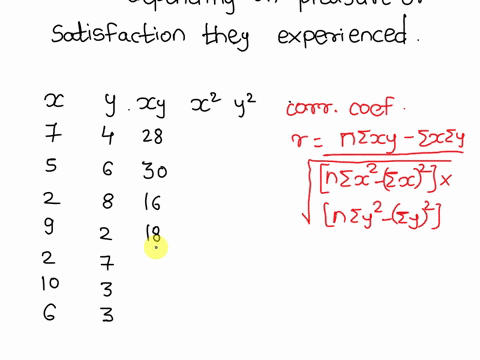 depending on pleasure or
satisfaction they experienced.
x y xy x² y²
7 4 28
5 6 30
2 8 16
9 2 18
2 7
10 3
6 3
corr. coef.
r = nΣxy - ΣxΣy
[nΣx²-(Σx)²] x
[nΣy²-(Σy)²]